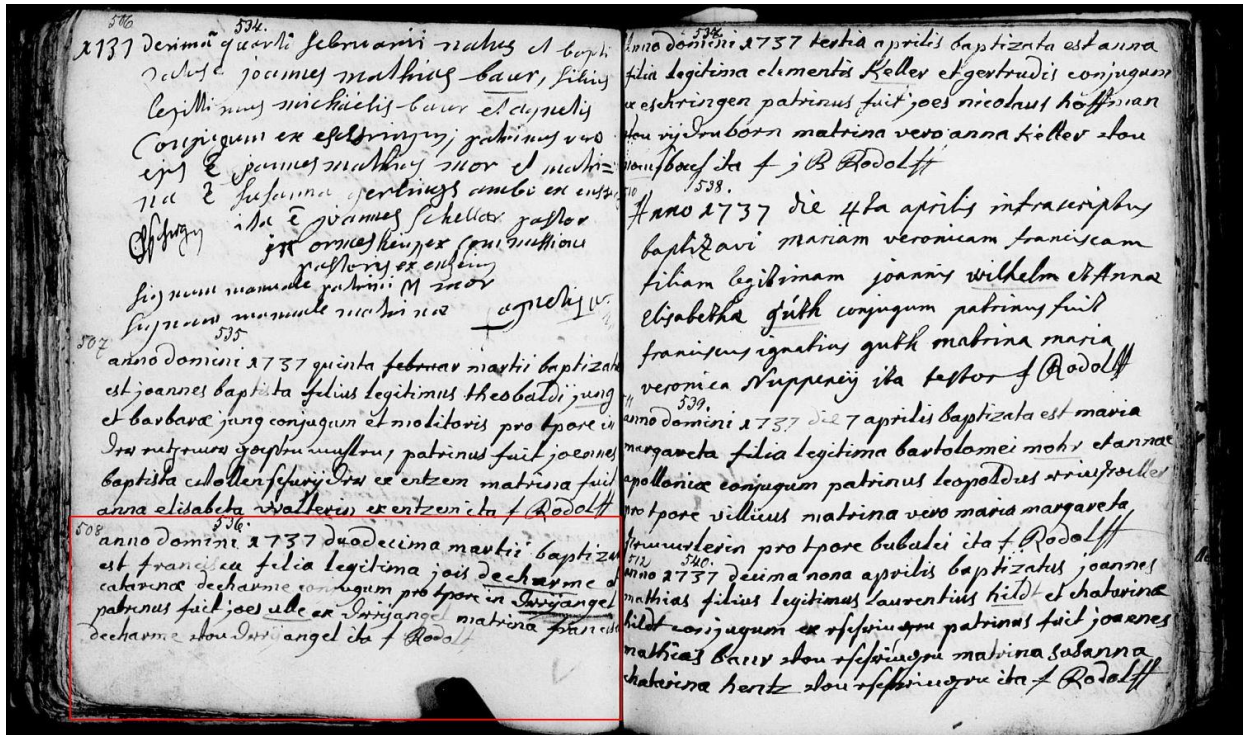 506
534.
1737 decima quarta februarii natus et bapti
zatus e joannes mathias baur, filius
legittimus michaelis baur et agnetis
conjugum ex patrinus vero
ejus ē joannes mathias mor et matri=
na ē susanna ambo ex
ita ē joannes scheller pastor
in ex commissione
pastoris ex
signum manuale patrini M mor
signum manuale matrinae
507
535
anno domini 1737 quinta februar martii baptizat
est joannes baptista filius legitimus theobaldi jung
et barbara jung conjugum et molitoris pro tpore in
patrinus fuit joannes
baptista ex entzem matrina fuit
anna elisabeta ex entzem ita f Rodolff
508
536.
anno domini 1737 duodecima martii baptiza
est francisca filia legitima jois decharme et
catarinæ decharme conjugum pro tpore in
patrinus fuit joes ulle ex matrina francisca
decharme ita f Rodolf
534.
anno domini 1737 tertia aprilis baptizata est anna
filia legitima clementis Keller et gertrudis conjugum
ex eschringen patrinus fuit joes nicolaus hoffman
matrina vero anna Keller
ita f j B Rodolff
510
538.
Anno 1737 die 4ta aprilis infrascriptus
baptizavi mariam veronicam franciscam
filiam legitimam joannis wilhelm et Anna
Elisabetha guth conjugum patrinus fuit
franciscus ignatius guth matrina maria
veronica ita testor f Rodolff
539.
anno domini 1737 die 7 aprilis baptizata est maria
margareta filia legitima bartolomei mohr et annæ
apolloniæ conjugum patrinus leopoldus
pro tpore villicus matrina vero maria margareta
pro tpore bubulci ita f Rodolff
512
540.
anno 1737 decima nona aprilis baptizatus joannes
mathias filius legitimus laurentius hildt et chatarinæ
hildt conjugum ex patrinus fuit joannes
mathias baur matrina susanna
chatarina hentz ita f Rodolff